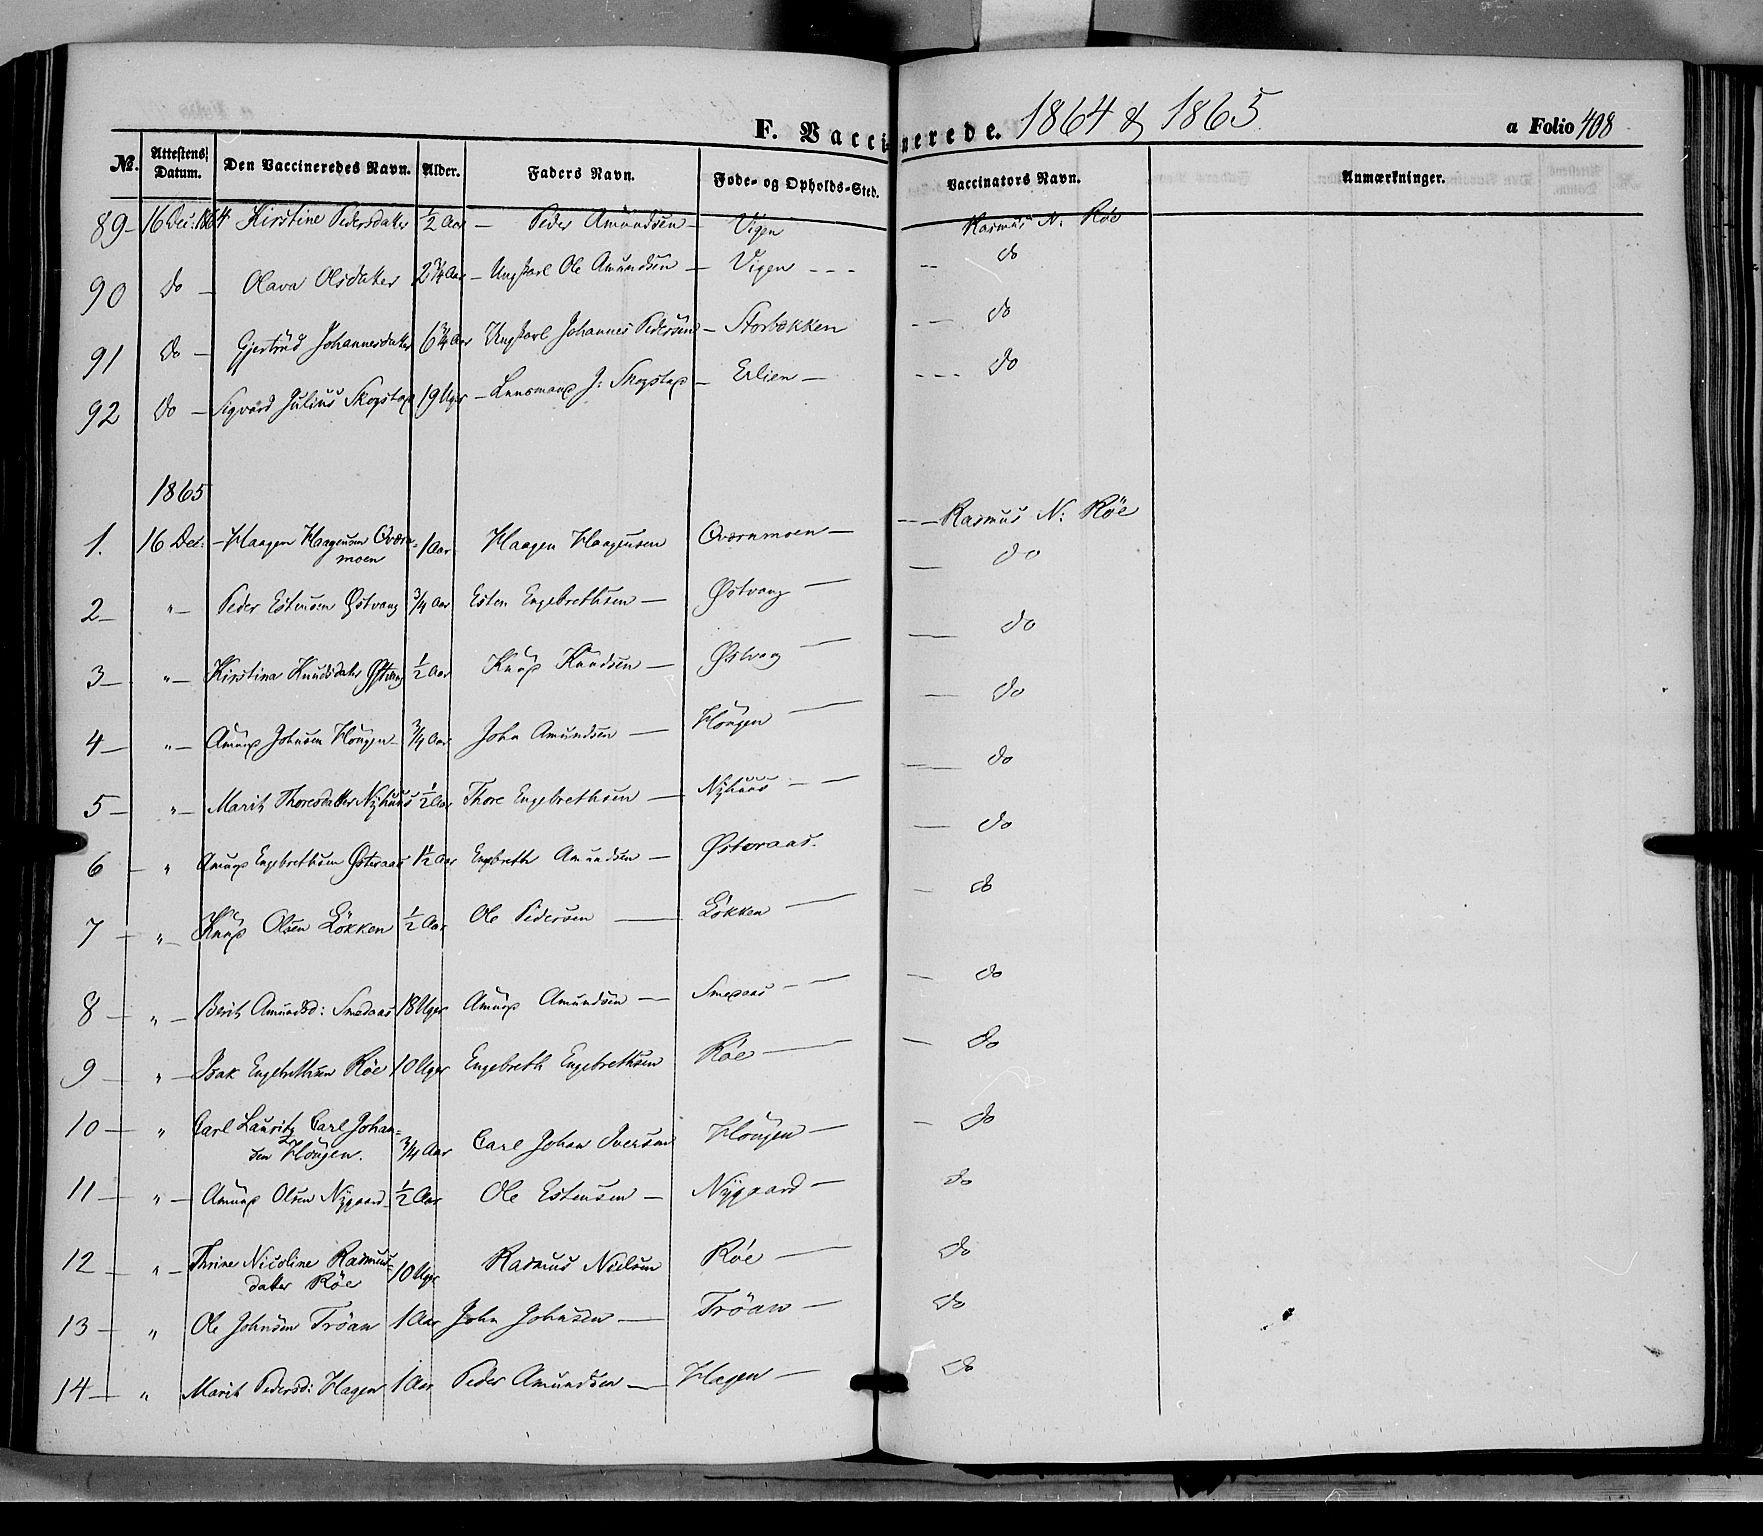 F. Vaccinerede. 1864 & 1865
a Folio 408
No. Attestens Datum. Den Vaccineredes Navn. Alder. Faders Navn. Føde- og Opholds-Sted. Vaccinators Navn. Anmærkninger.
89 - 16 Dec: 1864 Kirstine Pedersdatter 1/2 Aar - Peder Amundsen - Vigen Rasmus N: Røe
90 do - Olava Olsdatter 2 3/4 Aar - Ungkarl Ole Amundsen - Vigen - - - -- do
91 do - Gjertrud Johannesdatter 6 3/4 Aar Ungkarl Johannes Pedersen - Storbækken - — do
92 do - Sigvard Julius Skogstad 19 Uger - Lensmand J: Skogstad - Erlien — - - — do
1865
1. 16 Dec: - Haagen Haagensen Qværn=
moen 1 Aar Haagen Haagensen Qværnmoen — - - — Rasmus N: Røe
2 — " — Peder Estensen Østvang 3/4 Aar Esten Engebrethsen — Østvang — — do
3 — " — Kirstina Knudsdatter Østvang 1/2 Aar Knud Knudsen — Østvang — — do
4 — " — Amund Johnsen Hougen 3/4 Aar John Amundsen — Hougen — — do
5 — " — Marit Thoresdatter Nyhuus 1/2 Aar Thore Engebrethsen — Nyhuus - — — do
6 — " Amund Engebrethsen Østeraas 1 1/2 Aar Engebreth Amundsen — Østeraas. — do
7 — " — Knud Olsen Løkken 1/2 Aar Ole Pedersen — Løkken — — do
8 — " — Berit Amundsd: Smedaas 18 Uger Amund Amundsen — Smedaas - — — do
9 — " — Isak Engebrethsen Røe 10 Uger Engebreth Engebrethsen Røe — — do
10 — " Carl Lauritz Carl Johan=
sen Hougen. 3/4 Aar Carl Johan Iversen Hougen — — do
11 — " — Amund Olsen Nygaard 1/2 Aar Ole Estensen — Nygaard — do
12 — " — Thrine Nicoline Rasmus=
datter Røe 10 Uger Rasmus Nielsen Røe — do
13 — " Ole Johnsen Trøan 1 Aar John Johnsen — Trøan — do
14 — " Marit Pedersd: Hagen 1 Aar Peder Amundsen — Hagen — do